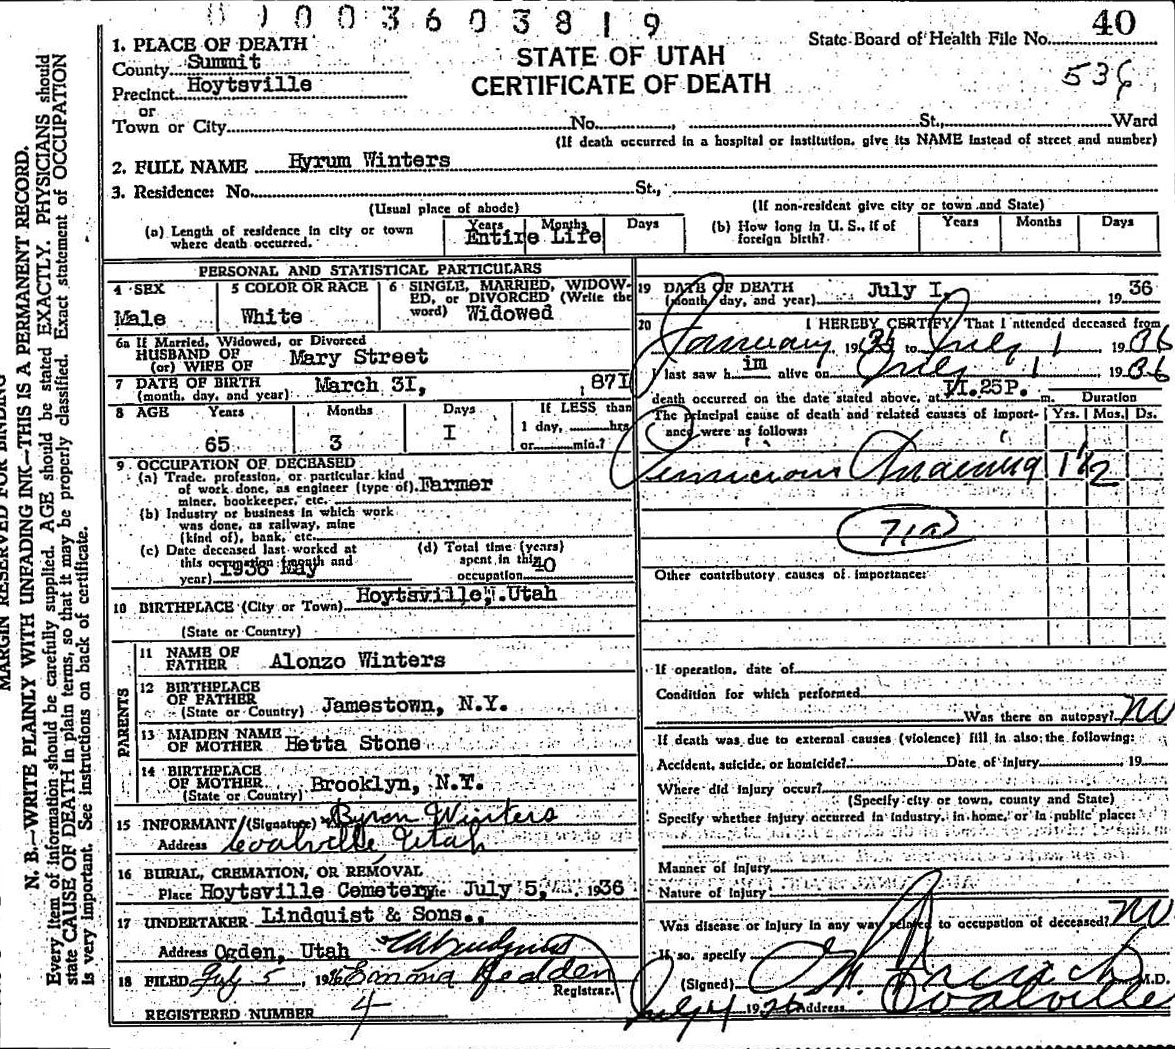 0 9 0 0 3 6 0 3 8 1 9
40
State Board of Health File No.
536
STATE OF UTAH
CERTIFICATE OF DEATH
1. PLACE OF DEATH
County Summit
Precinct Hoytsville
or
Town or City No. , St., Ward
(If death occurred in a hospital or institution, give its NAME instead of street and number)
2. FULL NAME Hyrum Winters
3. Residence: No. St.,
(Usual place of abode) (If non-resident give city or town and State)
(a) Length of residence in city or town where death occurred. Years Months Days
Entire Life
(b) How long in U. S., if of foreign birth? Years Months Days
PERSONAL AND STATISTICAL PARTICULARS
4 SEX
Male
5 COLOR OR RACE
White
6 SINGLE, MARRIED, WIDOW-
ED, or DIVORCED (Write the
word) Widowed
6a If Married, Widowed, or Divorced
HUSBAND OF
(or) WIFE OF Mary Street
7 DATE OF BIRTH
(month, day, and year) March 3I, , 87I
8 AGE Years Months Days If LESS than
1 day, hrs
or min.?
65 3 I
9 OCCUPATION OF DECEASED
(a) Trade, profession, or particular kind
of work done, as engineer (type of). Farmer
miner, bookkeeper, etc.
(b) Industry or business in which work
was done, as railway, mine
(kind of), bank, etc.
(c) Date deceased last worked at
this occupation (month and
year) 1936 May
(d) Total time (years)
spent in this
occupation 40
10 BIRTHPLACE (City or Town) Hoytsville, Utah
(State or Country)
PARENTS
11 NAME OF
FATHER Alonzo Winters
12 BIRTHPLACE
OF FATHER
(State or Country) Jamestown, N.Y.
13 MAIDEN NAME
OF MOTHER Hetta Stone
14 BIRTHPLACE
OF MOTHER
(State or Country) Brooklyn, N.Y.
15 INFORMANT (Signature) Byron Winters
Address Coalville, Utah
16 BURIAL, CREMATION, OR REMOVAL
Place Hoytsville Cemetery July 5, 1936
17 UNDERTAKER Lindquist & Sons.
Address Ogden, Utah
18 FILED July 5, 1936 Emma
Registrar.
REGISTERED NUMBER 4
19 DATE OF DEATH
(month, day, and year) July I, 1936
20 I HEREBY CERTIFY, That I attended deceased from
January 1936 to July 1 1936
I last saw him alive on July 1 1936
death occurred on the date stated above, at II.25P. m.
The principal cause of death and related causes of import-
ance were as follows:
Duration
Yrs. Mos. Ds.
Pernicious Anaemia 1 1/2
71a
Other contributory causes of importance:
If operation, date of
Condition for which performed
Was there an autopsy? No
If death was due to external causes (violence) fill in also the following:
Accident, suicide, or homicide? Date of injury 19
Where did injury occur?
(Specify city or town, county and State)
Specify whether injury occurred in industry, in home, or in public place:
Manner of Injury
Nature of Injury
Was disease or injury in any way related to occupation of deceased? No
If so, specify
(Signed) M.D.
July 4 1936 Address Coalville
MARGIN RESERVED FOR BINDING
N. B.—WRITE PLAINLY WITH UNFADING INK—THIS IS A PERMANENT RECORD.
Every item of information should be carefully supplied. AGE should be stated EXACTLY. PHYSICIANS should
state CAUSE OF DEATH in plain terms, so that it may be properly classified. Exact statement of OCCUPATION
is very important. See instructions on back of certificate.